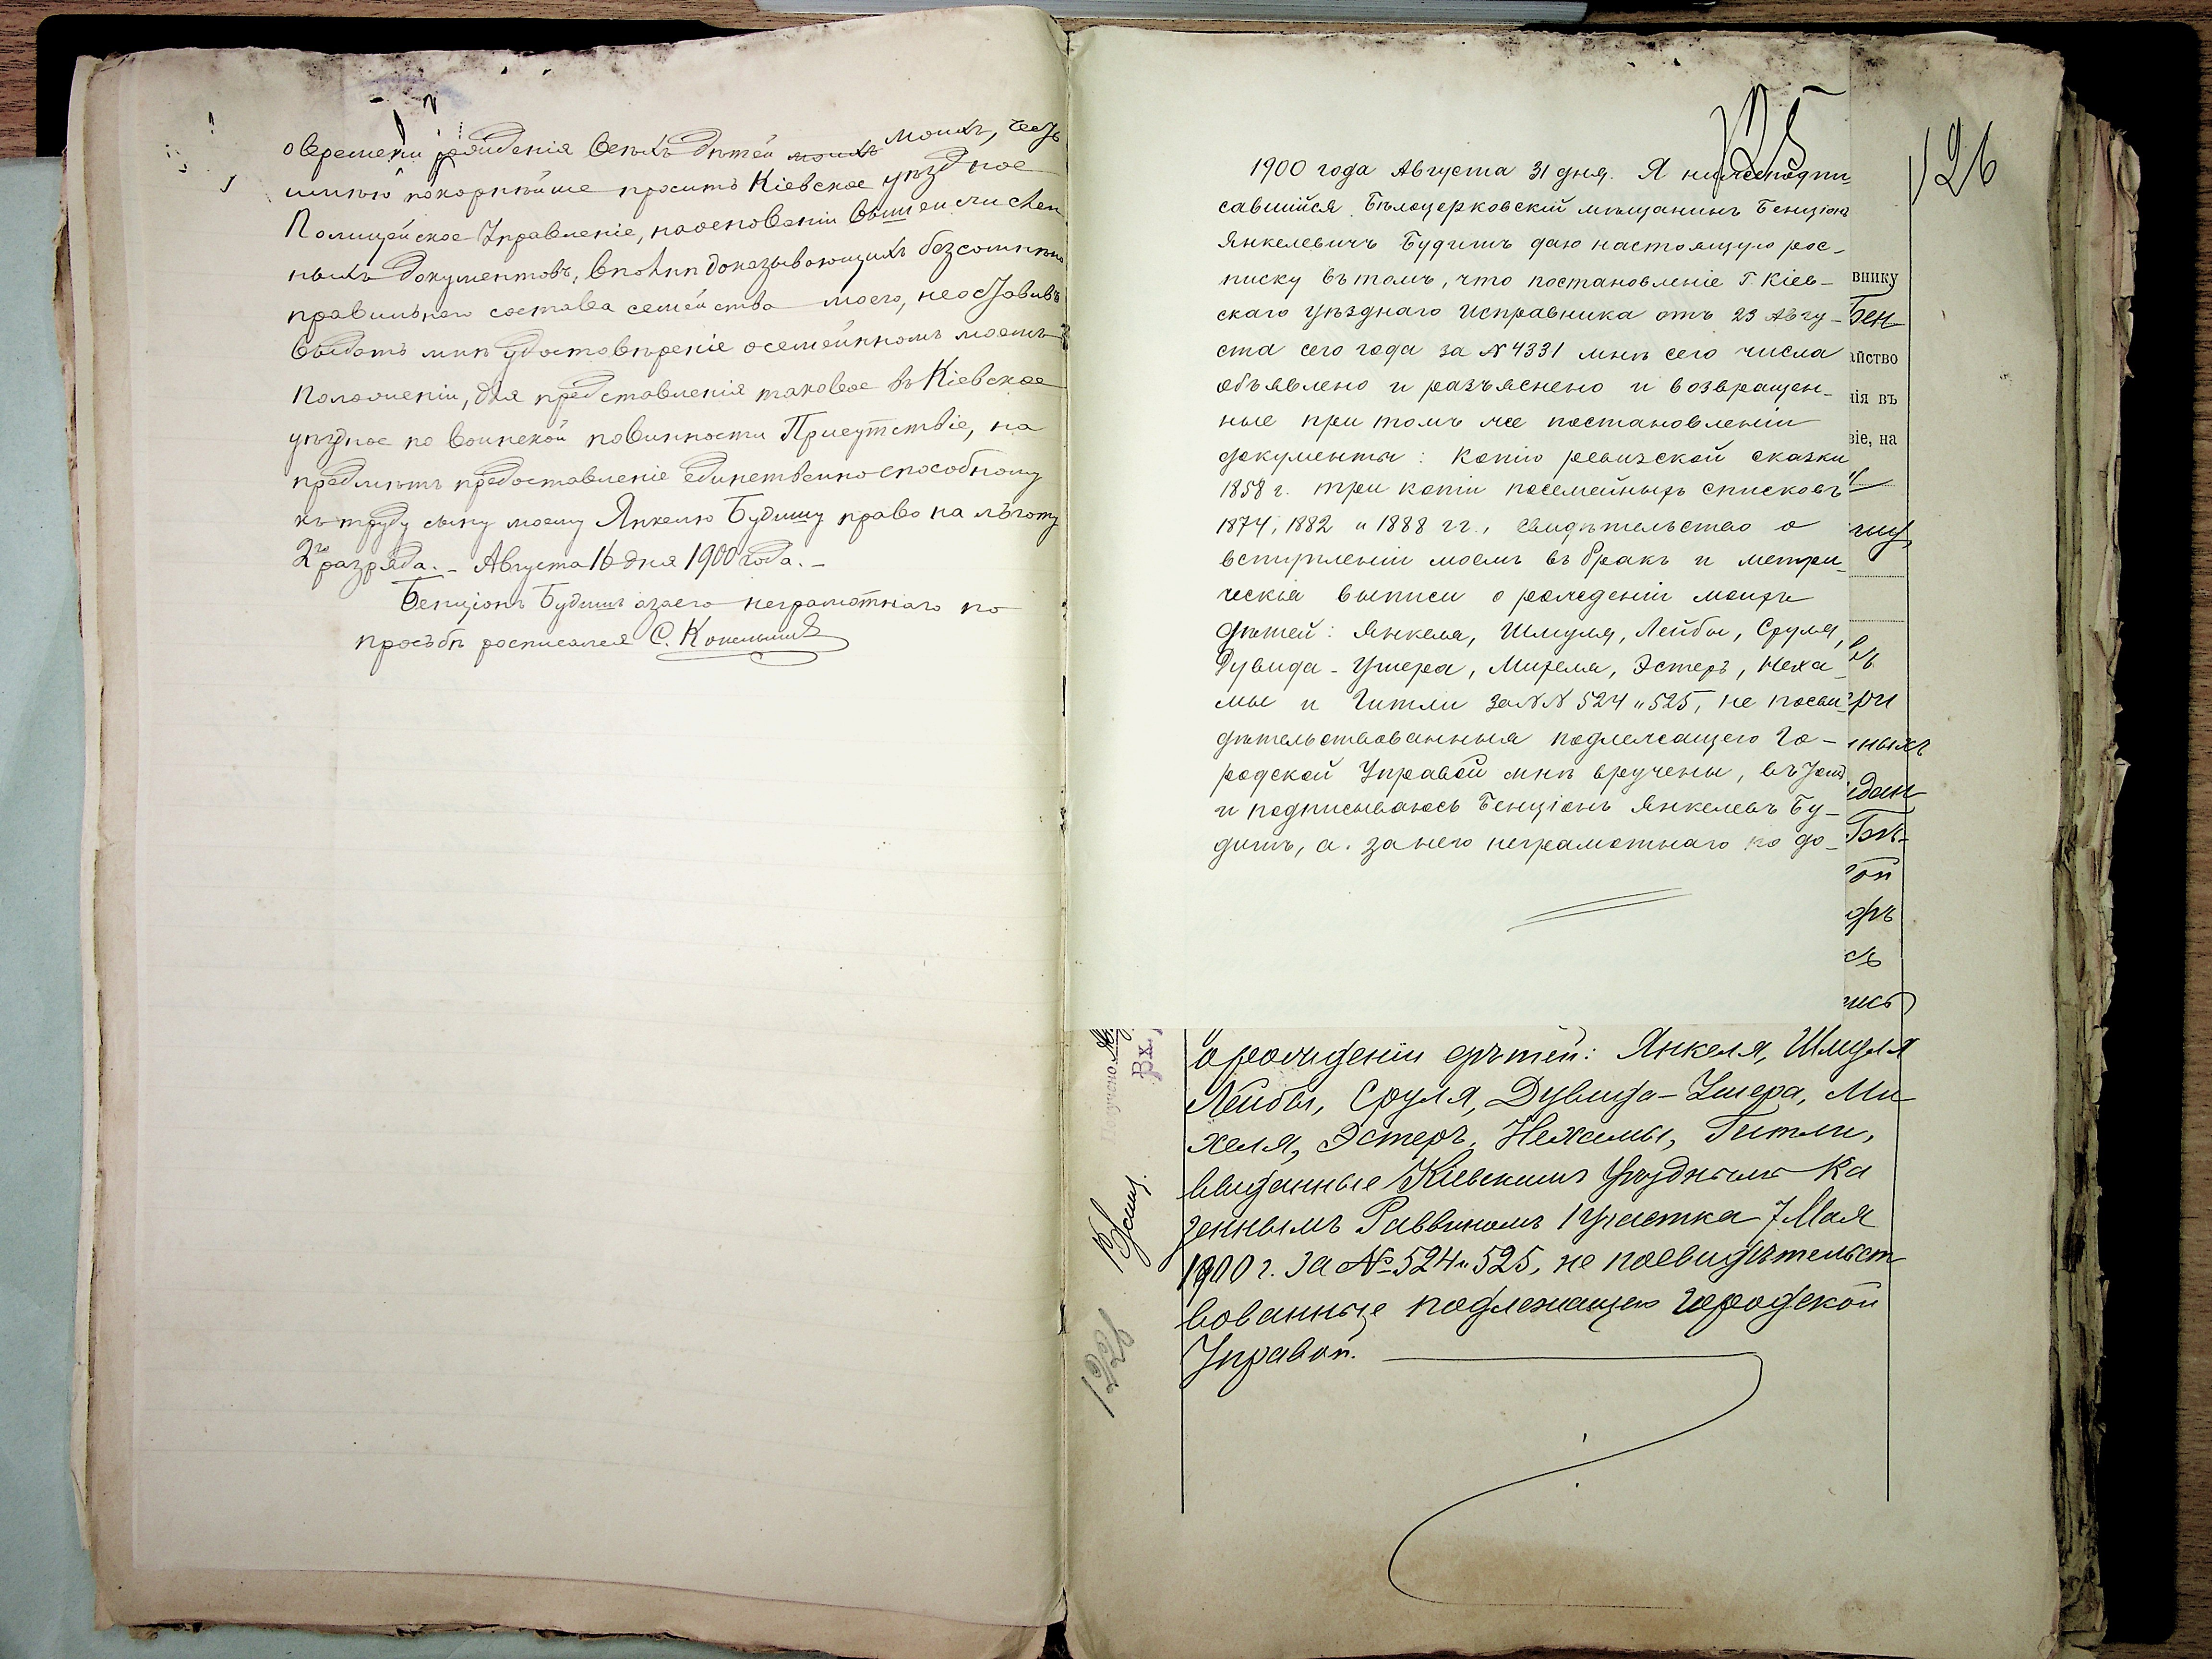 о времени рожденія всѣхъ дѣтей моихъ моихъ, честь
имѣю покорнѣйше просить Кіевское уѣздное
Полицейское Управленіе, на основаніи вышеисчислен
ныхъ документовъ, вполнѣ доказывающихъ безсомнѣнно
правильнаго состава семейства моего, не оставивъ
выдать мнѣ удостовѣреніе о семейномъ моемъ
положеніи, для представленія таковое въ Кіевское
уѣздное по воинской повинности Присутствіе, на
предметъ предоставленіе единственно способному
къ труду сыну моему Янкелю Будишу право на льготу
2го разряда. – Августа 16 дня 1900 года. –
Бенціонъ Будишъ а за его неграмотнаго по
просьбѣ росписался С.
125
126
1900 года Августа 31 дня. Я нижеподпи-
савшійся Бѣлоцерковскій мѣщанинъ Бенціонъ
Янкелевичъ Будишъ даю настоящую рос-
писку въ томъ, что постановленіе Г. Кіев-
скаго Уѣзднаго Исправника отъ 23 Авгу-
ста сего года за № 4331 мнѣ сего числа
объявлено и разъяснено и возвращен-
ные при томъ же постановленіи
документы: Копію ревизской сказки
1858 г. три копіи посемейныхъ списковъ
1874, 1882 и 1888 гг., свидѣтельство о
вступленіи моемъ въ бракъ и метри-
ческія выписи о рожденіи моихъ
дѣтей: Янкеля, Шмуля, Лейбы, Сруля,
Дувида-Ушера, Михеля, Эстеръ, Неха-
мы и Гитли за №№ 524 и 525, не посви-
дѣтельствованныя подлежащего Го-
родской Управой мнѣ вручены, въ томъ
и подписываюсь Бенціонъ Янкелевъ Бу-
дишъ, а за него неграмотнаго по до-
внику
Бен
айство
нія въ
віе, на
ри
нныхъ
Бѣ-
ись
о рожденіи дѣтей: Янкеля, Шмуля
Лейбы, Сруля, Дувида-Ушера, Ми
хеля, Эстеръ, Нехамы, Гитли,
выданные Кіевскимъ Уѣзднымъ Ка
зеннымъ Раввиномъ 1 участка 7 Мая
1900 г. за № 524 и 525, не посвидѣтельст
вованные подлежащею Городской
Управой.
Получено
Вх.
1226